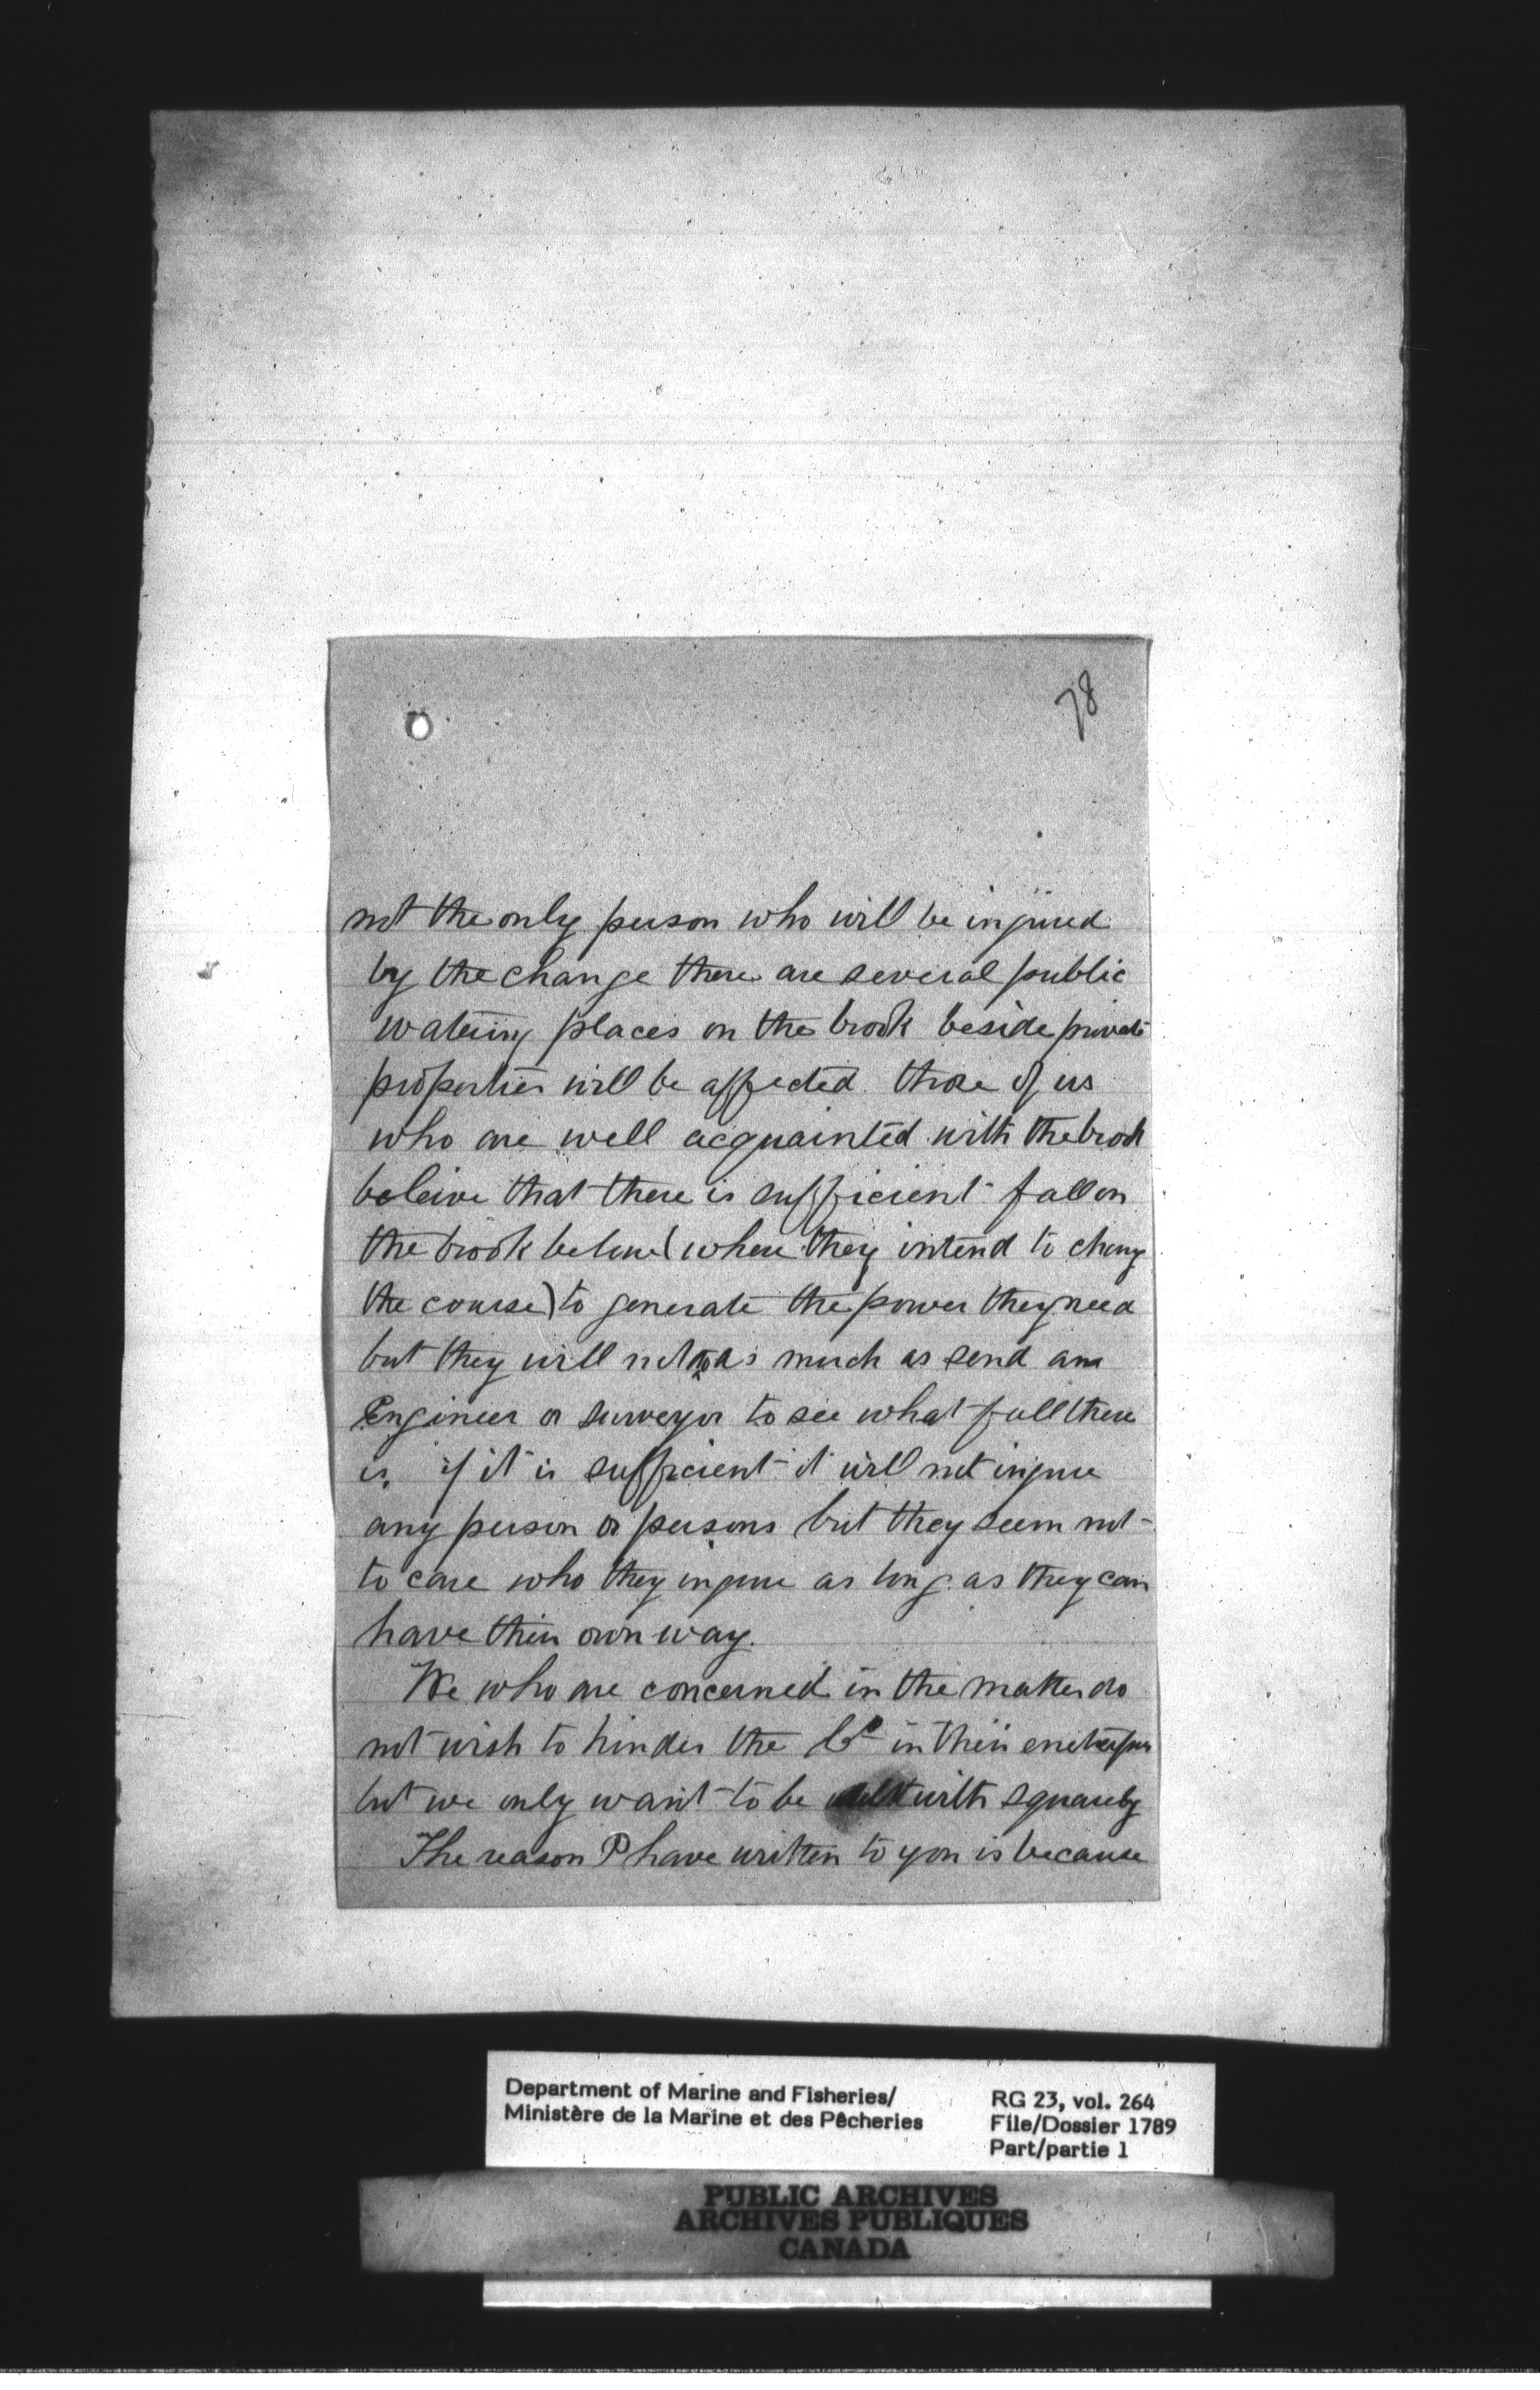 78
not the only person who will be injured
by the change there are several public
watering places on the brook beside private
properties will be affected those of us
who are well acquainted with the brook
beleive that there is sufficient fall on
the brook below (where they intend to change
the course) to generate the power they need
but they will not so as much as send an
Engineer or surveyor to see what fall there
is, if it is sufficient it will not injure
any person or persons but they seem not
to care who they injure as long as they can
have their own way.
We who are concerned in the matter do
not wish to hinder the Co in their
but we only want to be with squarely
The reason I have written to you is because
Department of Marine and Fisheries/
Ministère de la Marine et des Pêcheries
RG 23, vol. 264
File/Dossier 1789
Part/partie 1
PUBLIC ARCHIVES
ARCHIVES PUBLIQUES
CANADA